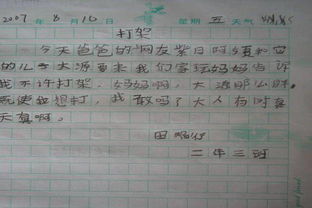 2007 年 8 月 10 日 星期 五 天气
打架
今天爸爸的网友柴日呵续和他
的儿子大源要来我们家玩妈妈告诉
我不许打架,妈妈啊,大源那么胖,
就使我想打,我敢吗?大人有时真
天真啊。
田
二年三班